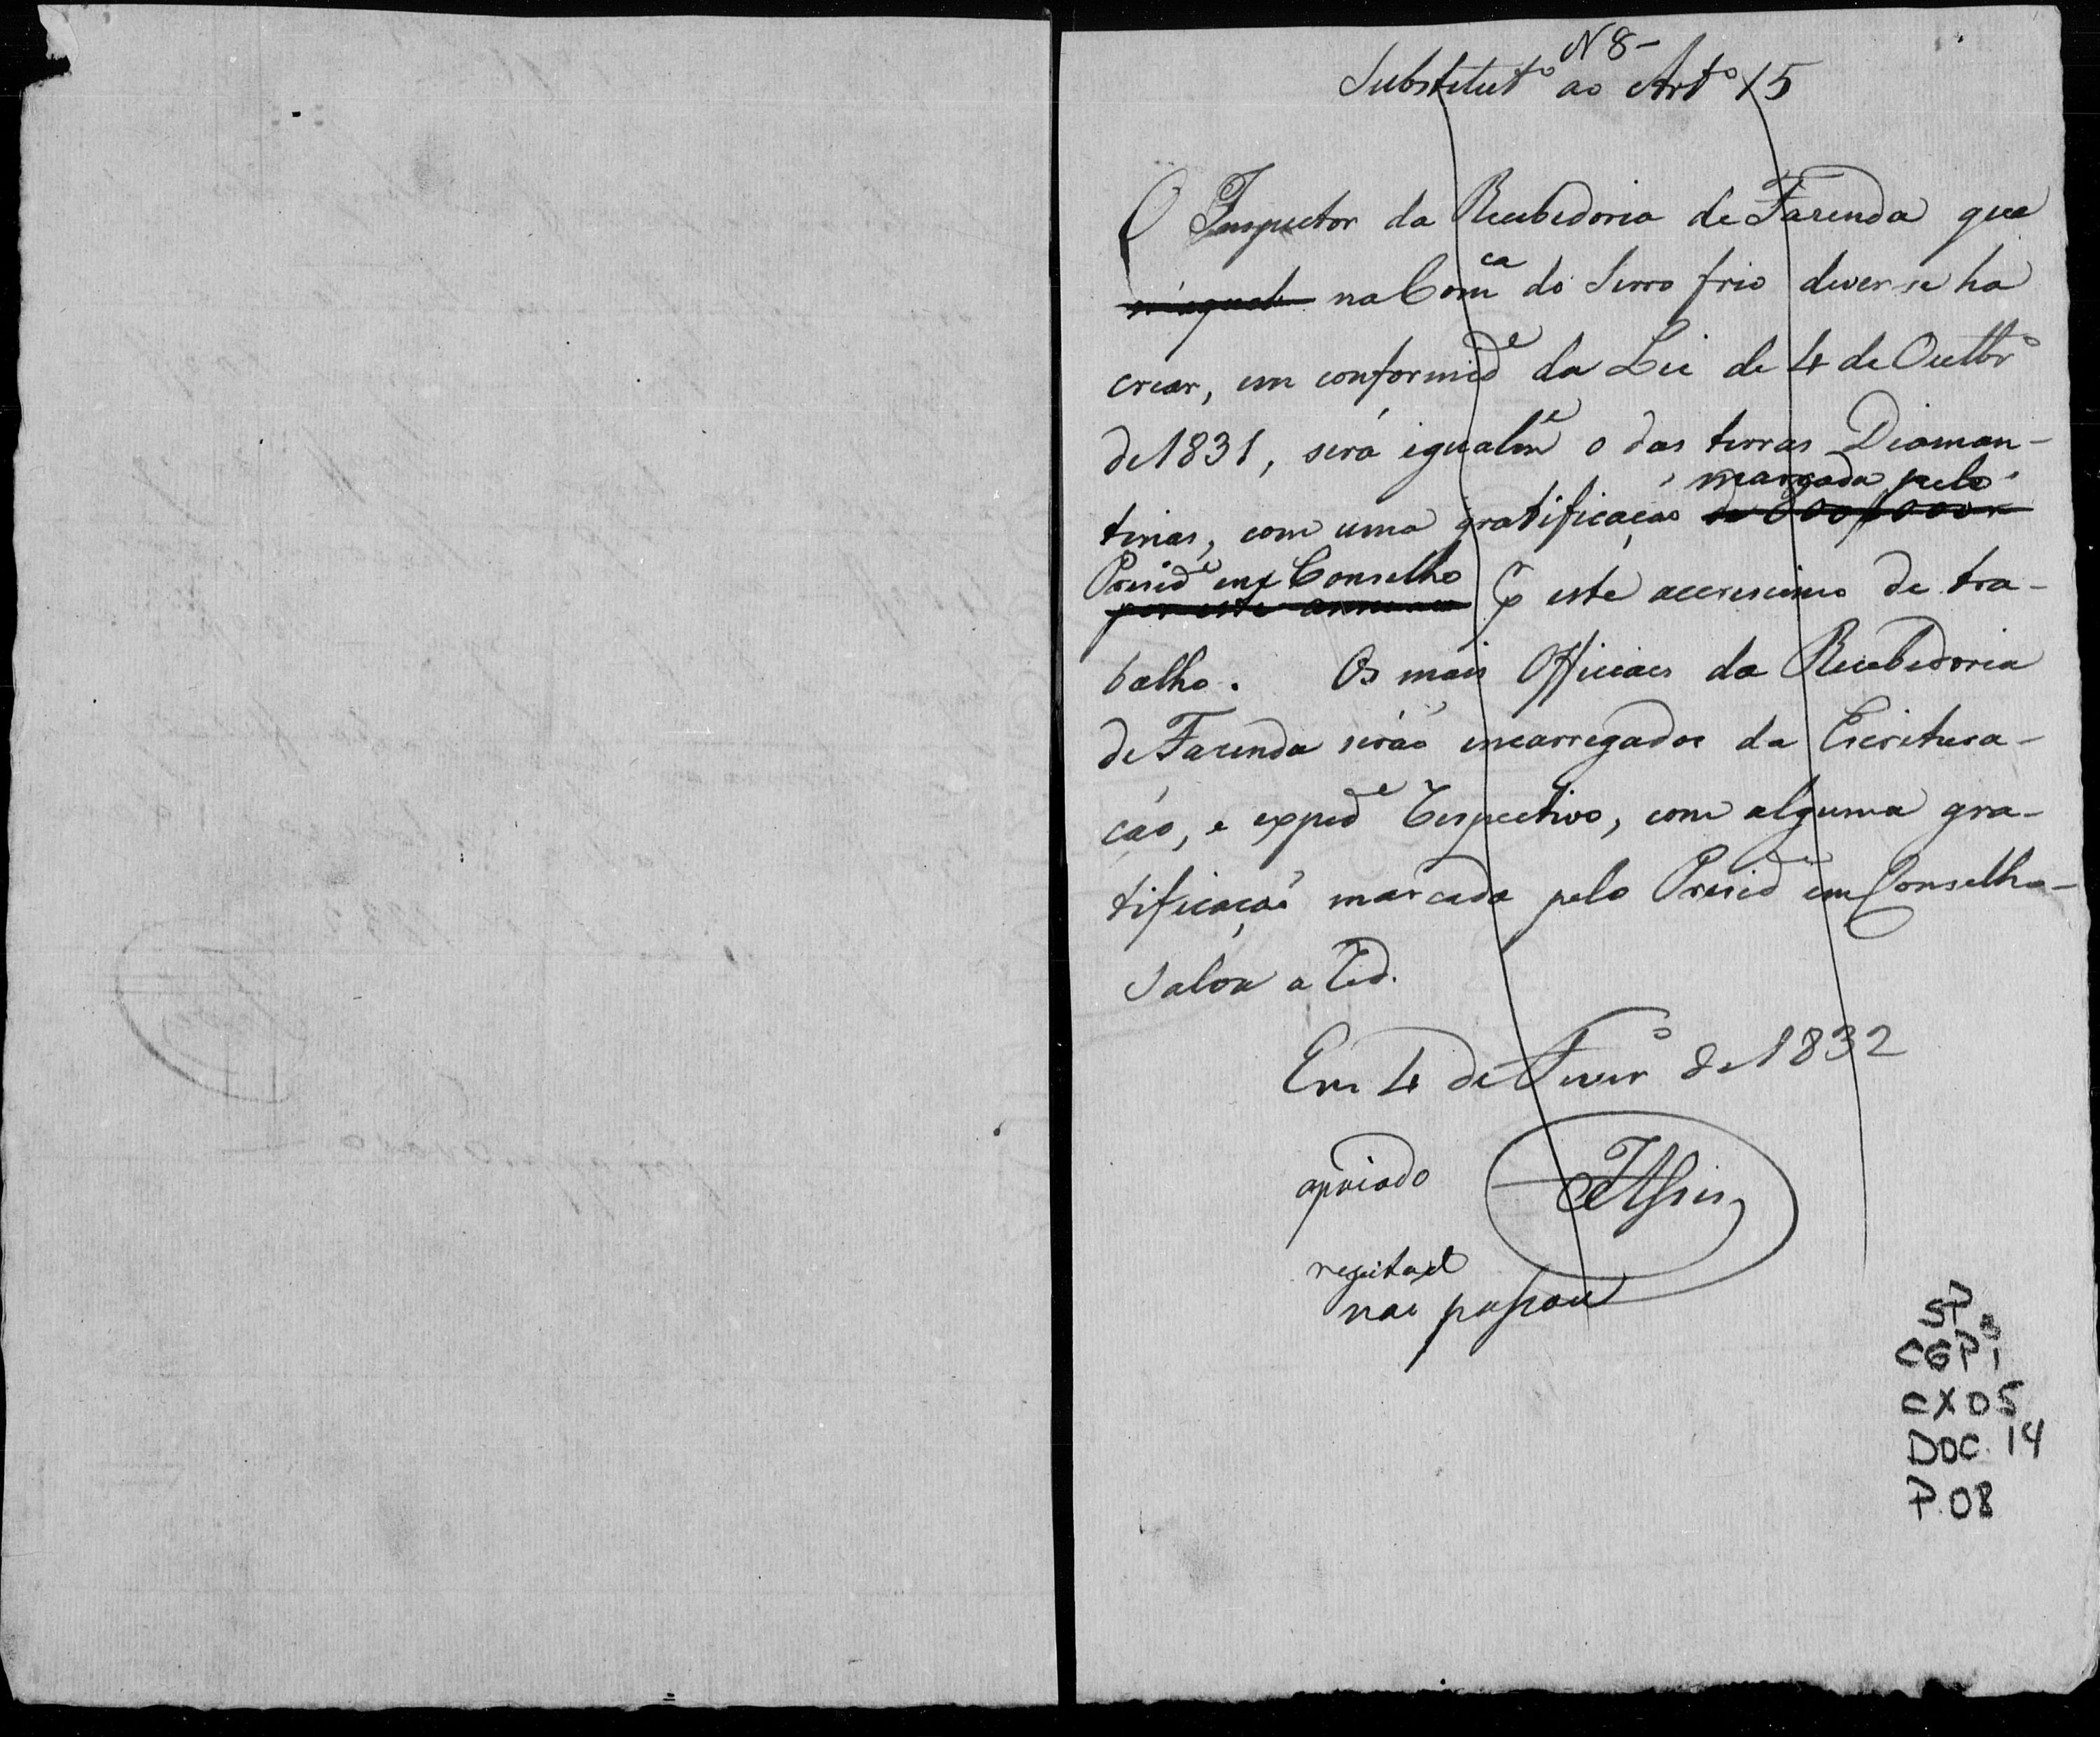 N 8-
Substitut.º ao Art.º 15
O Inspector da Recebedoria de Fazenda que
na Com.ca do Serro frio dever se ha
crear, em conformid.e da Lei de 4 de Outbr.º
de 1831, será igualm.e o das terras Diaman-
marcada pelo
tinas, com uma gratificação de 600$000 r
Presid.e em Conselho
por este
p.r este accrescimo de tra-
balho. Os mais Officiaes da Recebedoria
de Fazenda serão encarregados da Escritura-
ção, e exped.e respectivo, com alguma gra-
tificação marcada pelo Presid.e em Conselho-
Salva a red.
Em 4 de Fever.º de 1832
apoiado
regeitad
não passou
SP
CGP1
CX 05
DOC. 14
P. 08